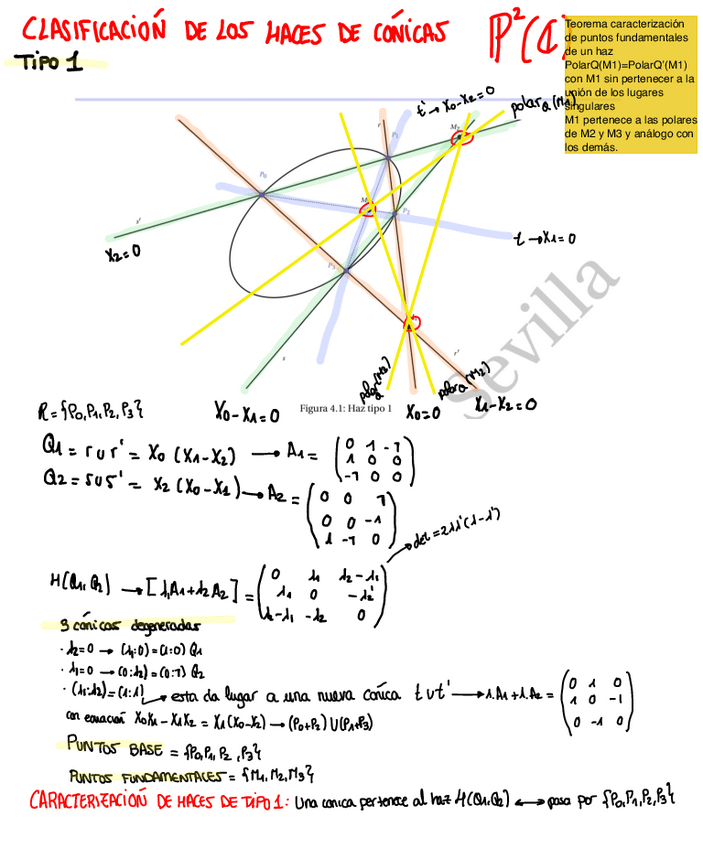 CLASIFICACIÓN DE LOS HACES DE CÓNICAS ℙ²(ℂ)
TIPO 1
Teorema caracterización
de puntos fundamentales
de un haz
PolarQ(M1)=PolarQ'(M1)
con M1 sin pertenecer a la
unión de los lugares
singulares
M1 pertenece a las polares
de M2 y M3 y análogo con
los demás.
t' → X0-X2=0
polarQ(M1)
P0
P1
P2
P3
X2=0
t → X1=0
s'
s
r
r'
Sevilla
polarQ(M3)
polarQ(M2)
R={P0,P1,P2,P3}
X0-X1=0
Figura 4.1: Haz tipo 1
X0=0
X1-X2=0
Q1 = r∪r' = X0 (X1-X2) → A1 = (0 1 -1
1 0 0
-1 0 0)
Q2 = s∪s' = X2 (X0-X1) → A2 = (0 0 1
0 0 -1
1 -1 0)
→ det = 2λλ'(λ-λ')
H(Q1,Q2) → [λ1A1+λ2A2] = (0 λ1 λ2-λ1
λ1 0 -λ2
λ2-λ1 -λ2 0)
3 cónicas degeneradas
· λ2=0 → (λ1:0)=(1:0) Q1
· λ1=0 → (0:λ2)=(0:1) Q2
· (λ1:λ2)=(1:1) → esta da lugar a una nueva cónica t∪t' → 1·A1+1·A2 = (0 1 0
1 0 -1
0 -1 0)
con ecuación X0X1-X1X2 = X1(X0-X2) → (P0+P2)∪(P1+P3)
PUNTOS BASE = {P0,P1,P2,P3}
PUNTOS FUNDAMENTALES = {M1,M2,M3}
CARACTERIZACIÓN DE HACES DE TIPO 1: Una conica pertenece al haz H(Q1,Q2) ↔ pasa por {P0,P1,P2,P3}